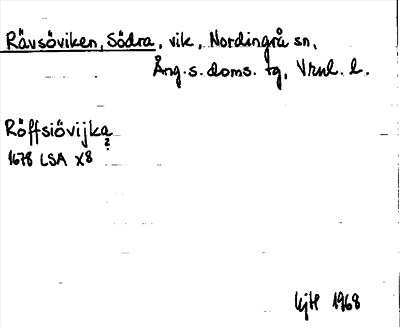 Rävsöviken, Södra, vik, Nordingrå sn,
Ång.s. doms. tg, Vrnl. l.
Röffsiövijka
?
1678 LSA X8
HjH 1968